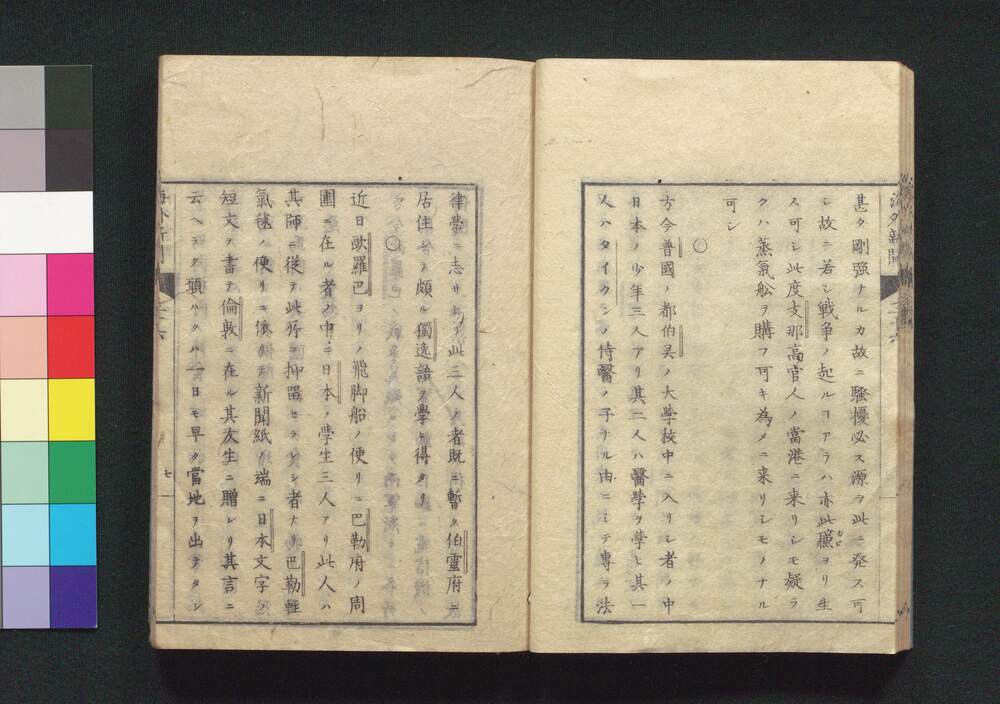 甚タ剛强ナルカ故ニ騷擾必ス源ヲ此ニ発ス可
シ故ニ若シ戦争ノ起ルヿアラハ亦此廉ヨリ生
ス可シ此度支那高官人ノ當港ニ来リシモ疑ラ
クハ蒸氣舩ヲ購フ可キ為メニ来リシモノナル
可シ
○
方今普國ノ都伯灵ノ大學校中ニ入リシ者ノ中
日本ノ少年三人アリ其二人ハ醫学ヲ学ヒ其一
人ハタイクンノ侍醫ノ子ナル由ニシテ專ラ法
律學ニ志サセリ此三人ノ者既ニ暫ク伯靈府ニ
居住シテ頗ル獨逸語ヲ學ヒ得タリ
○
近日歐羅巴ヨリノ飛脚船ノ便リニ巴勒府ノ周
圍ニ在ル者ノ中ニ日本ノ學生三人アリ此人ハ
其師ニ從テ此所ニ抑畱セラレシ者ナリ巴勒輕
氣毬ノ便リニ新聞紙ノ端ニ日本文字ノ
短文ヲ書テ倫敦ニ在ル其友生ニ贈レリ其言ニ
云ヘラク願ハクハ一日モ早ク當地ヲ出テタシ
海外新聞
七